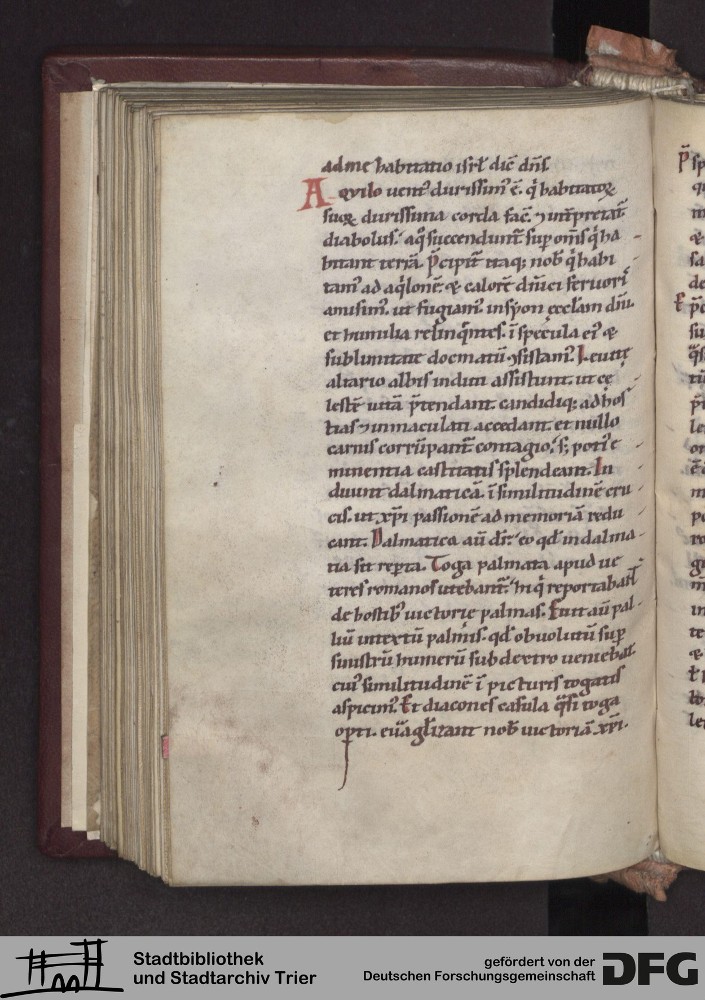 ad me habitatio isrł dic̄ dn̄s.
Aquilo uentꝰ durissimꝰ ē. q̇ habitatoꝝ
suoꝝ durissima corda fac̄. ⁊ int̄pretat̄
diabolus. aq̇ succendunt̄ sup om̄s q̇ ha
bitant terrā. P̄cipit̄ itaq; nob q̇ habi
tamꝰ ad aq̇lonē. & calorē dn̄ici feruorꝭ
amisimꝰ. ut fugiamꝰ in syon eccłam dn̄i.
et humilia relinq̄ntes. ī specula eiꝰ &
sublimitate docmatū ↄsistamꝰ. Leuite
altario albis induti assistunt. ut cę
lestē uitā p̄tendant. candidiq; ad hos
tias ⁊ inmaculati accedant. et nullo
carnis corrūpant̄ contagio. s; potiꝰ e
minentia castitatis splendeant. In
duunt dalmaticā. ī similitudinē cru
cis. ut xp̄i passionē ad memoriā redu
cant. Dalmatica aū dr̄ eo qđ in dalma
tia sit reperta. Toga palmata apud ue
teres romanos utebant̄. in q̇ reportabant
de hostibꝰ uictorie palmas. Fuit aū pal
liū intextū palmis. qđ obuolutū sup
sinistrū humerū sub dextro ueniebat.
cuiꝰ similitudinē ī picturis togatis
aspicimꝰ. Et diacones casula q̄si toga
opti. euāgłizant nob uictoriā xp̄i.
Stadtbibliothek
und Stadtarchiv Trier
gefördert von der
Deutschen Forschungsgemeinschaft
DFG